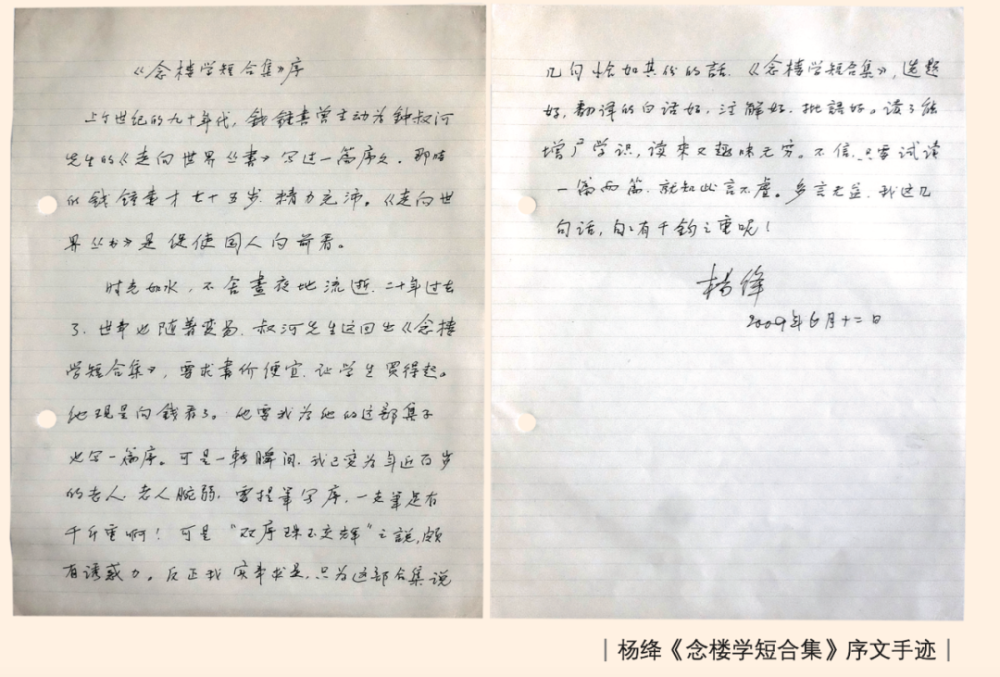 《念楼学短合集》序
上个世纪的九十年代,钱鍾書曾主动为鍾叔河
先生的《走向世界丛書》写过一篇序文。那時
的钱鍾書才七十五岁,精力充沛。《走向世
界丛书》是促使国人向前看。
时光如水,不舍晝夜地流逝,二十年过去
了,世事也随着变易。叔河先生这回出《念楼
学短合集》,要求書价便宜,让学生買得起。
他现是向钱看了。他要我为他的这部集子
也写一篇序。可是一轉瞬间,我已变为年近百岁
的老人。老人腕弱,要提筆写序,一支筆是有
千斤重啊!可是“双序珠玉交辉”之説,颇
有誘惑力。反正我实事求是,只为这部合集説
几句恰如其份的話。《念楼学短合集》,选题
好,翻译的白话好,注解好,批語好。读了能
增广学识,读来又趣味无穷。不信,只要试读
一篇两篇,就知此言不虚。多言无益,我这几
句话,句句有千钧之重呢!
杨绛
2009年6月十二日
|杨绛《念楼学短合集》序文手迹|